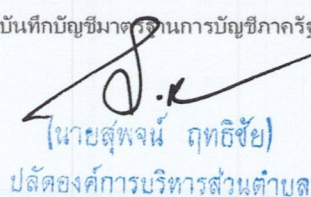 บันทึกบัญชีมาตรฐานการบัญชีภาครัฐ
(นายสุพจน์ ฤทธิชัย)
ปลัดองค์การบริหารส่วนตำบล